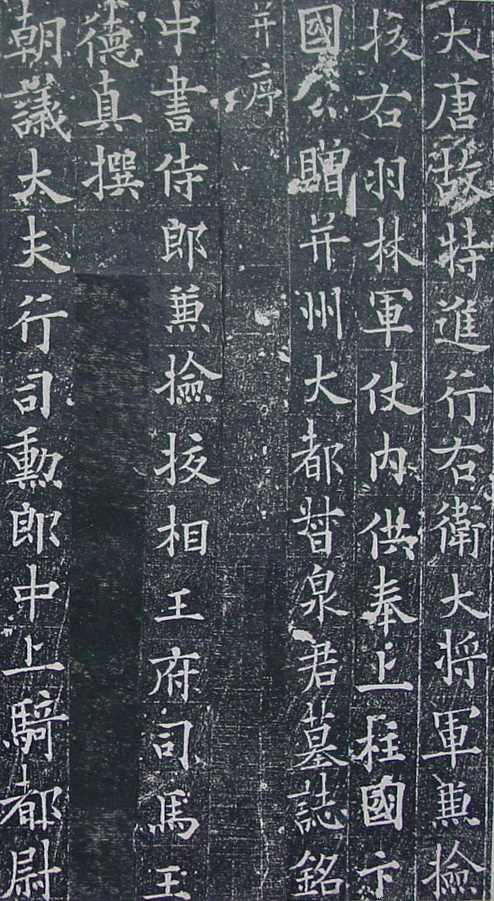 大唐故特進行右衛大将軍兼撿
挍右羽林軍仗内供奉上柱國卞
國公贈并州大都督泉君墓誌銘
并序
中書侍郎兼撿挍相王府司馬王
德真撰
朝議大夫行司勳郎中上騎都尉